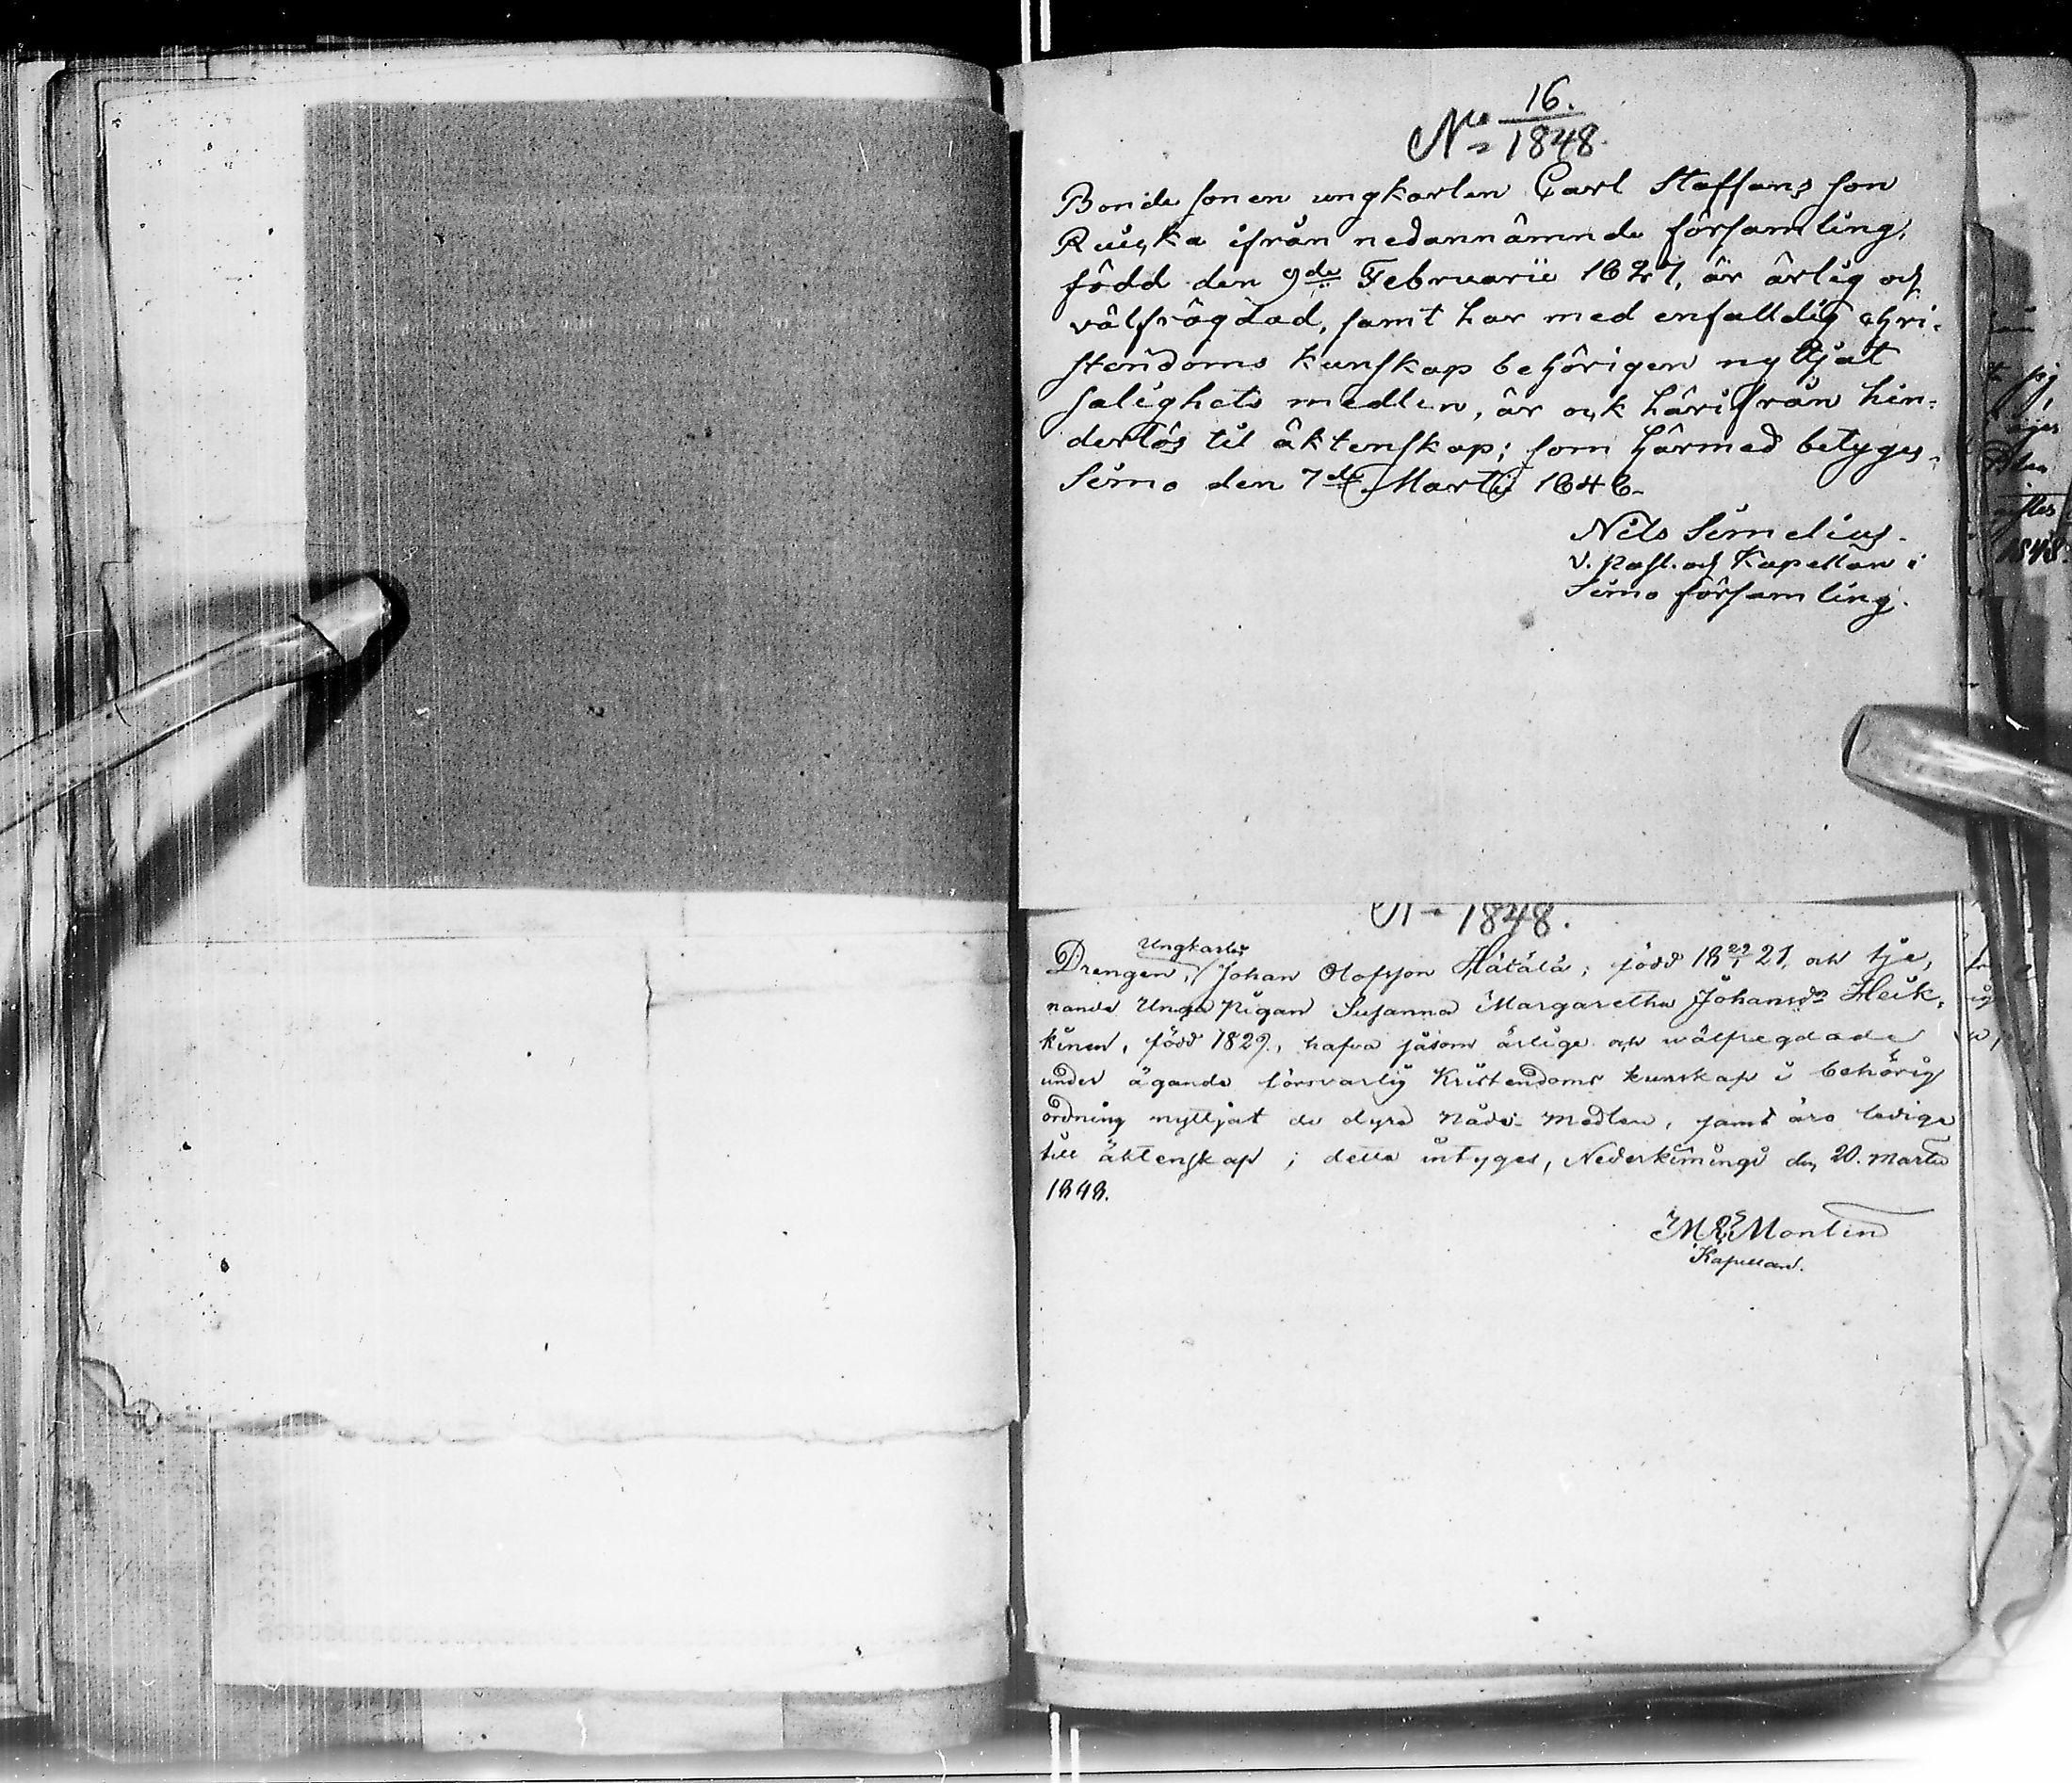 No 16./1848.
Bonde sonen ungkarlen Carl Staffans son
Ruicka ifrån nedannämnde församling,
född den 9de Februarii 1827, är ärlig och
välfrägdad, samt har med enfalldig chri-
stendoms kunskap behörigen nyttjat
salighets medlen, är ock härifrån hin-
derlös til äktenskap; som härmed betyges.
Simo den 7de Martii 1848.
Nils Simelius.
v. Past. och Kapellan i
Simo församling.
N 1848.
Ungkarln
Drengen, Johan Olofsson Hätälä, född 18 22/1 21, och tje,
nande Unga Pigan Susanna Margaretha Johansdr Heik,
kinen, född 1829, hafva såsom ärlige och wälfregdade
under ägande försvarlig Kristendoms kunskap i behörig
ordning nyttjat de dyra Nåde-medlen, samt äro ledige
till äktenskap; detta intygas, Nederkimingi den 20. Martii
1848.
Montin
Kapellan.
1848.